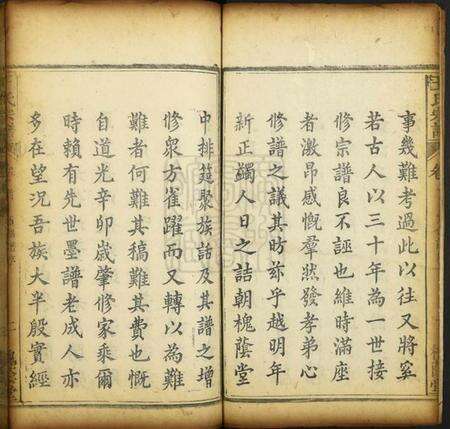 王氏宗譜
事幾難考過此以往又將寧
若古人以三十年為一世接
修宗譜良不誣也維時滿座
者激昂感慨羣狀發孝弟心
修譜之議其昉茲乎越明年
新正蠲人日之詰朝槐蔭堂
中排筵聚族話及其譜之增
修眾方雀躍而又轉以為難
難者何難其稿難其費也慨
自道光辛卯歲肇修家乘爾
時賴有先世墨譜老成人亦
多在望況吾族大半殷實經